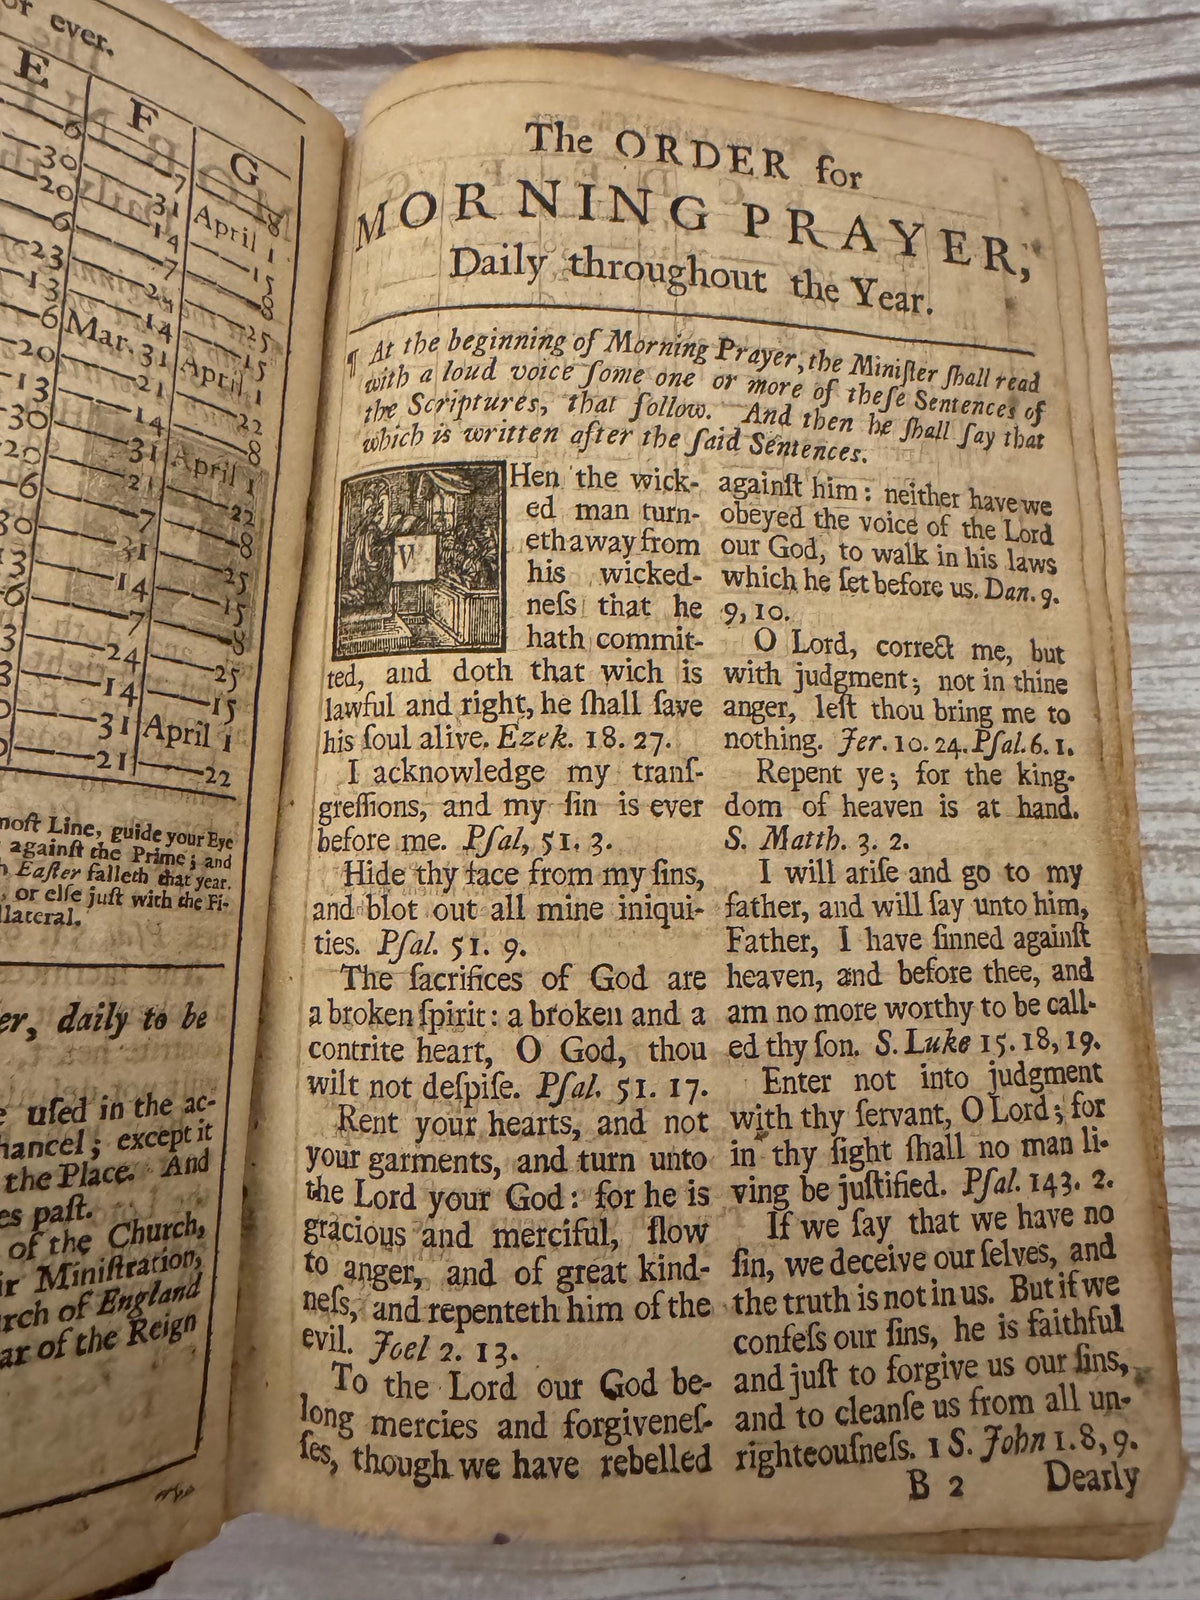 or ever.
E F G
6 7 8
30 31 April 1
20 14 15
6 7 8
23 24 25
13 14 15
6 Mar. 31 April 1
20 21 22
13 14 8
30 31 April 1
20 21 22
6 7 8
30 31 25
13 14 15
6 7 8
3 24 25
3 14 15
0 31 April 1
0 21 22
moſt Line, guide your Eye
against the Prime; and
h Eaſter falleth that year.
, or elſe juſt with the Fi-
llateral.
er, daily to be
e uſed in the ac-
hancel; except it
the Place. And
es paſt.
of the Church,
ir Miniſtration,
urch of England
ar of the Reign
The ORDER for
MORNING PRAYER,
Daily throughout the Year.
¶ At the beginning of Morning Prayer, the Miniſter ſhall read
with a loud voice ſome one or more of theſe Sentences of
the Scriptures, that follow. And then he ſhall ſay that
which is written after the ſaid Sentences.
WHen the wick-
ed man turn-
eth away from
his wicked-
neſs that he
hath commit-
ted, and doth that wich is
lawful and right, he ſhall ſave
his ſoul alive. Ezek. 18. 27.
I acknowledge my tranſ-
greſſions, and my ſin is ever
before me. Pſal, 51. 3.
Hide thy face from my ſins,
and blot out all mine iniqui-
ties. Pſal. 51. 9.
The ſacrifices of God are
a broken ſpirit: a broken and a
contrite heart, O God, thou
wilt not deſpiſe. Pſal. 51. 17.
Rent your hearts, and not
your garments, and turn unto
the Lord your God: for he is
gracious and merciful, ſlow
to anger, and of great kind-
neſs, and repenteth him of the
evil. Joel 2. 13.
To the Lord our God be-
long mercies and forgiveneſ-
ſes, though we have rebelled
againſt him: neither have we
obeyed the voice of the Lord
our God, to walk in his laws
which he ſet before us. Dan. 9.
9, 10.
O Lord, correct me, but
with judgment; not in thine
anger, leſt thou bring me to
nothing. Jer. 10. 24. Pſal. 6. 1.
Repent ye; for the king-
dom of heaven is at hand.
S. Matth. 3. 2.
I will ariſe and go to my
father, and will ſay unto him,
Father, I have ſinned againſt
heaven, and before thee, and
am no more worthy to be call-
ed thy ſon. S. Luke 15. 18, 19.
Enter not into judgment
with thy ſervant, O Lord; for
in thy ſight ſhall no man li-
ving be juſtified. Pſal. 143. 2.
If we ſay that we have no
ſin, we deceive our ſelves, and
the truth is not in us. But if we
confeſs our ſins, he is faithful
and juſt to forgive us our ſins,
and to cleanſe us from all un-
righteouſneſs. 1 S. John 1. 8, 9.
B 2 Dearly